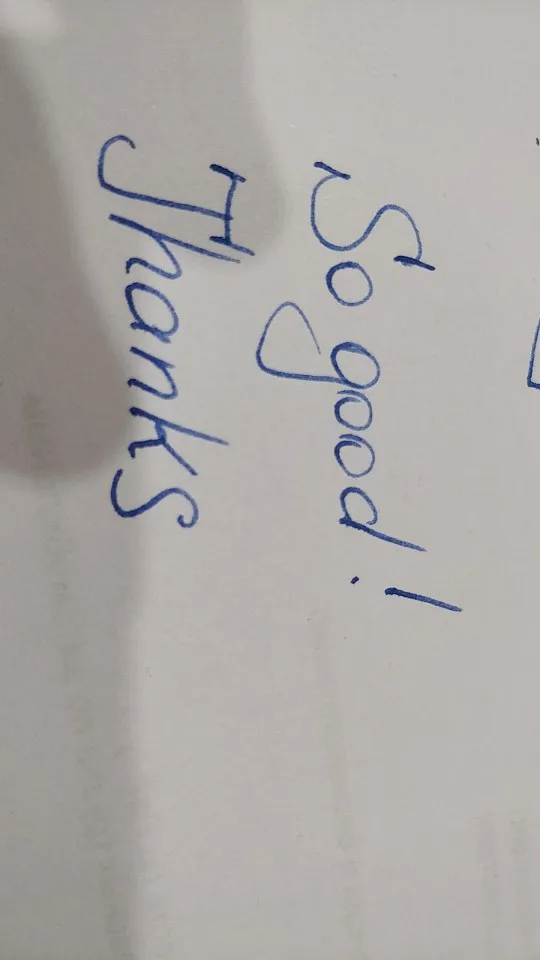 So good!
Thanks